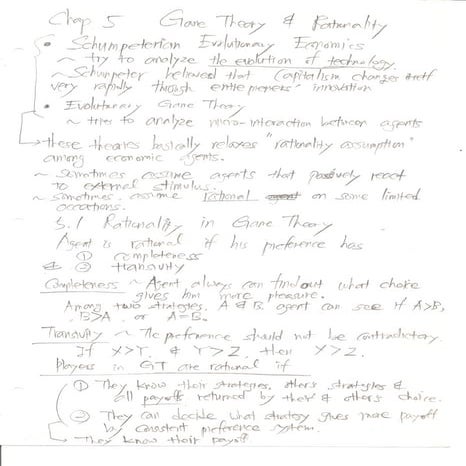 Chap 5 Game Theory & Rationality
• Schumpeterian Evolutionary Economics
~ try to analyze the evolution of technology.
~ Schumpeter believed that Capitalism changes itself
very rapidly through entrepreneurs' innovation
• Evolutionary Game Theory
~ tries to analyze micro-interaction between agents
→ these theories basically relaxes "rationality assumption"
among economic agents.
~ Sometimes assume agents that react
to external stimulus.
~ sometimes assume rational on some limited
occations.
5.1 Rationality in Game Theory
Agent is rational if his preference has
① completeness
& ② transivity
Completeness ~ Agent always can find out what choice
gives him more pleasure.
Among two strategies, A & B, agent can see if A>B,
B>A or A=B.
Transivity ~ The preference should not be contradictory.
If X>Y, & Y>Z, then X>Z.
Players in GT are rational if
① They know their strategies, other's strategies &
all payoffs returned by their & other's choice.
② They can decide what strategy gives more payoff
by consistent preference system.
→ They know their payoff